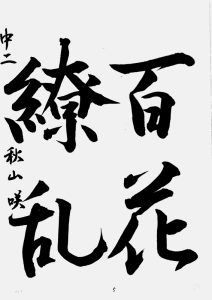 百花
繚乱
中二 秋山咲
5